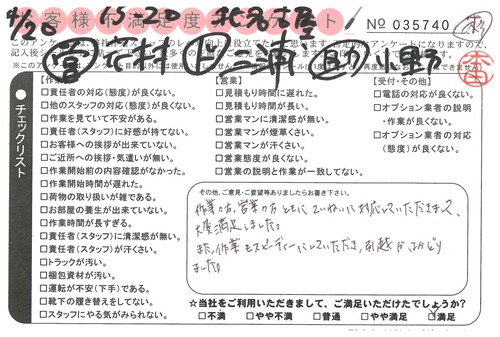 お客様不満足度アンケート
9/20 15-20 北名古屋
No 035740
チェックリスト
【作業】
□責任者の対応(態度)が良くない。
□他のスタッフの対応(態度)が良くない。
□作業を見ていて不安がある。
□責任者(スタッフ)に好感が持てない。
□お客様への挨拶が出来ていない。
□ご近所への挨拶・気遣いが無い。
□作業開始前の内容確認がなかった。
□作業開始時間が遅れた。
□荷物の取り扱いが雑である。
□お部屋の養生が出来ていない。
□作業時間が長すぎる。
□責任者(スタッフ)に清潔感が無い。
□責任者(スタッフ)が汗くさい。
□トラックが汚い。
□梱包資材が汚い。
□運転が不安(下手)である。
□靴下の履き替えをしてない。
□スタッフにやる気がみられない。
【営業】
□見積もり時間に遅れた。
□見積もり時間が長い。
□営業マンに清潔感が無い。
□営業マンが煙草くさい。
□営業マンが汗くさい。
□営業態度が良くない。
□営業の説明と作業が一致してない。
【受付・その他】
□電話の対応が良くない。
□オプション業者の説明
・作業が良くない。
□オプション業者の対応
(態度)が良くない。
その他、ご意見・ご要望等ありましたらお書き下さい。
作業の方、営業の方ともにていねいに対応していただきまして、
大変満足しました。
また、作業もスピーディーにしていただき、引越がはかどり
ました。
☆当社をご利用いただきまして、ご満足いただけたでしょうか?
□不満 □やや不満 □普通 □やや満足 □満足